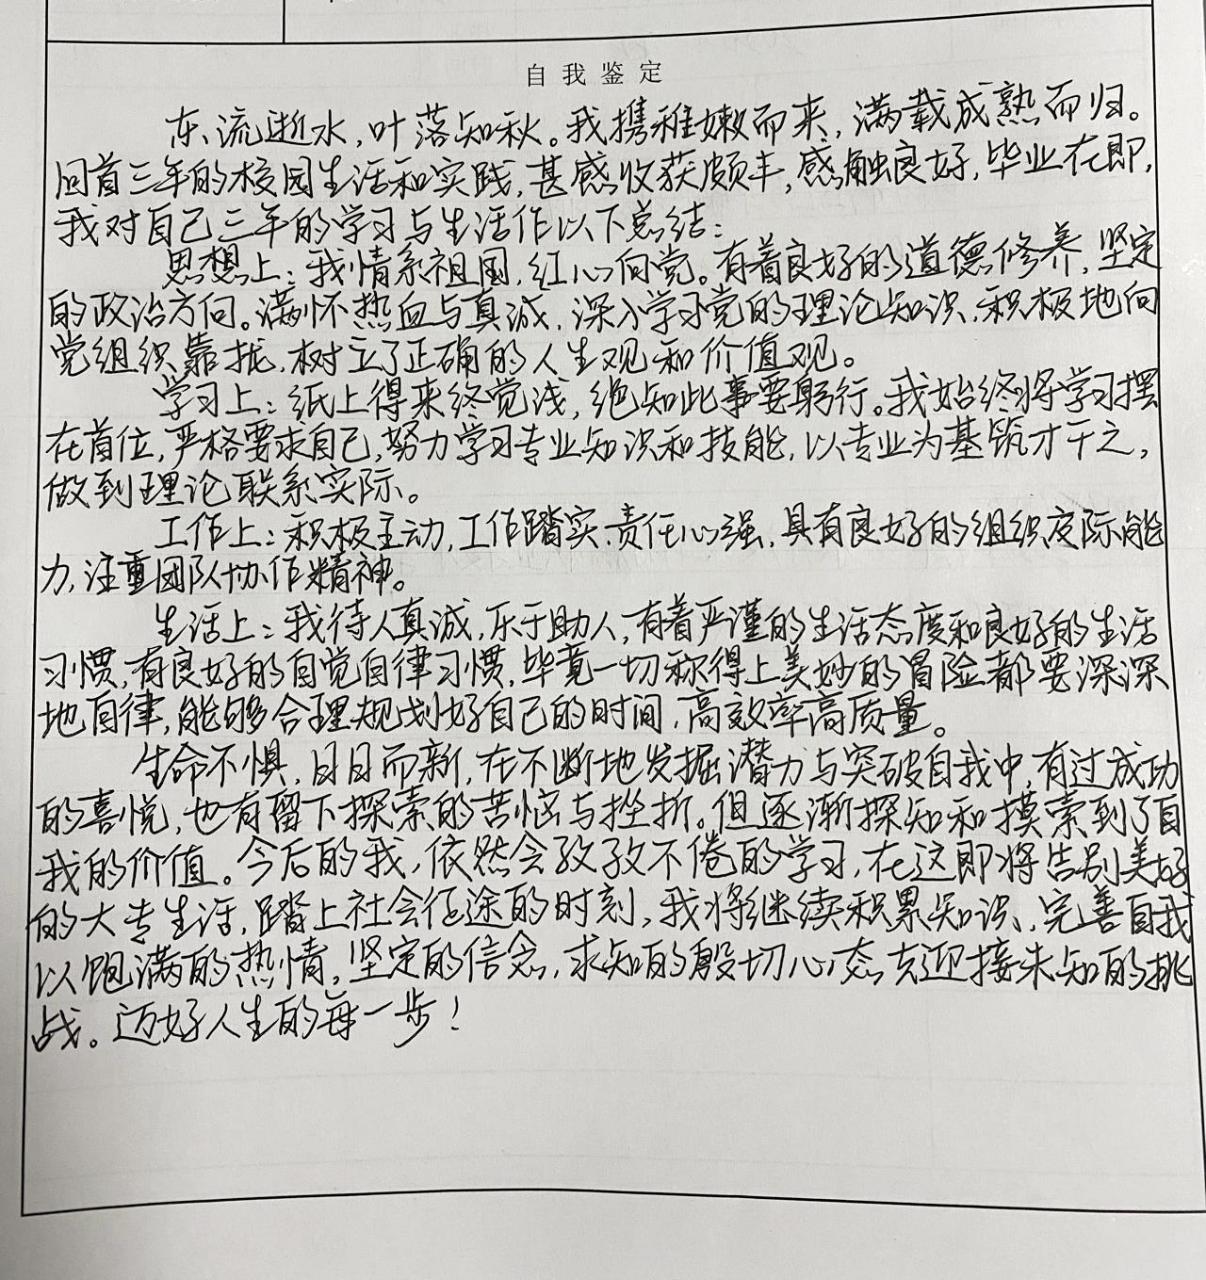 自我鉴定
东流逝水,叶落知秋。我携稚嫩而来,满载成熟而归。
回首三年的校园生活和实践,甚感收获颇丰,感触良好,毕业在即,
我对自己三年的学习与生活作以下总结:
思想上:我情系祖国,红心向党。有着良好的道德修养,坚定
的政治方向。满怀热血与真诚,深入学习党的理论知识,积极地向
党组织靠拢,树立了正确的人生观和价值观。
学习上:纸上得来终觉浅,绝知此事要躬行。我始终将学习摆
在首位,严格要求自己,努力学习专业知识和技能,以专业为基筑才干之,
做到理论联系实际。
工作上:积极主动,工作踏实,责任心强,具有良好的组织交际能
力,注重团队协作精神。
生活上:我待人真诚,乐于助人,有着严谨的生活态度和良好的生活
习惯,有良好的自觉自律习惯,毕竟一切称得上美妙的冒险都要深深
地自律,能够合理规划好自己的时间,高效率高质量。
生命不惧,日日而新,在不断地发掘潜力与突破自我中,有过成功
的喜悦,也有留下探索的苦恼与挫折。但逐渐探知和摸索到了自
我的价值。今后的我,依然会孜孜不倦的学习,在这即将告别美好
的大专生活,踏上社会征途的时刻,我将继续积累知识,完善自我
以饱满的热情,坚定的信念,求知的殷切心态去迎接未知的挑
战。迈好人生的每一步!